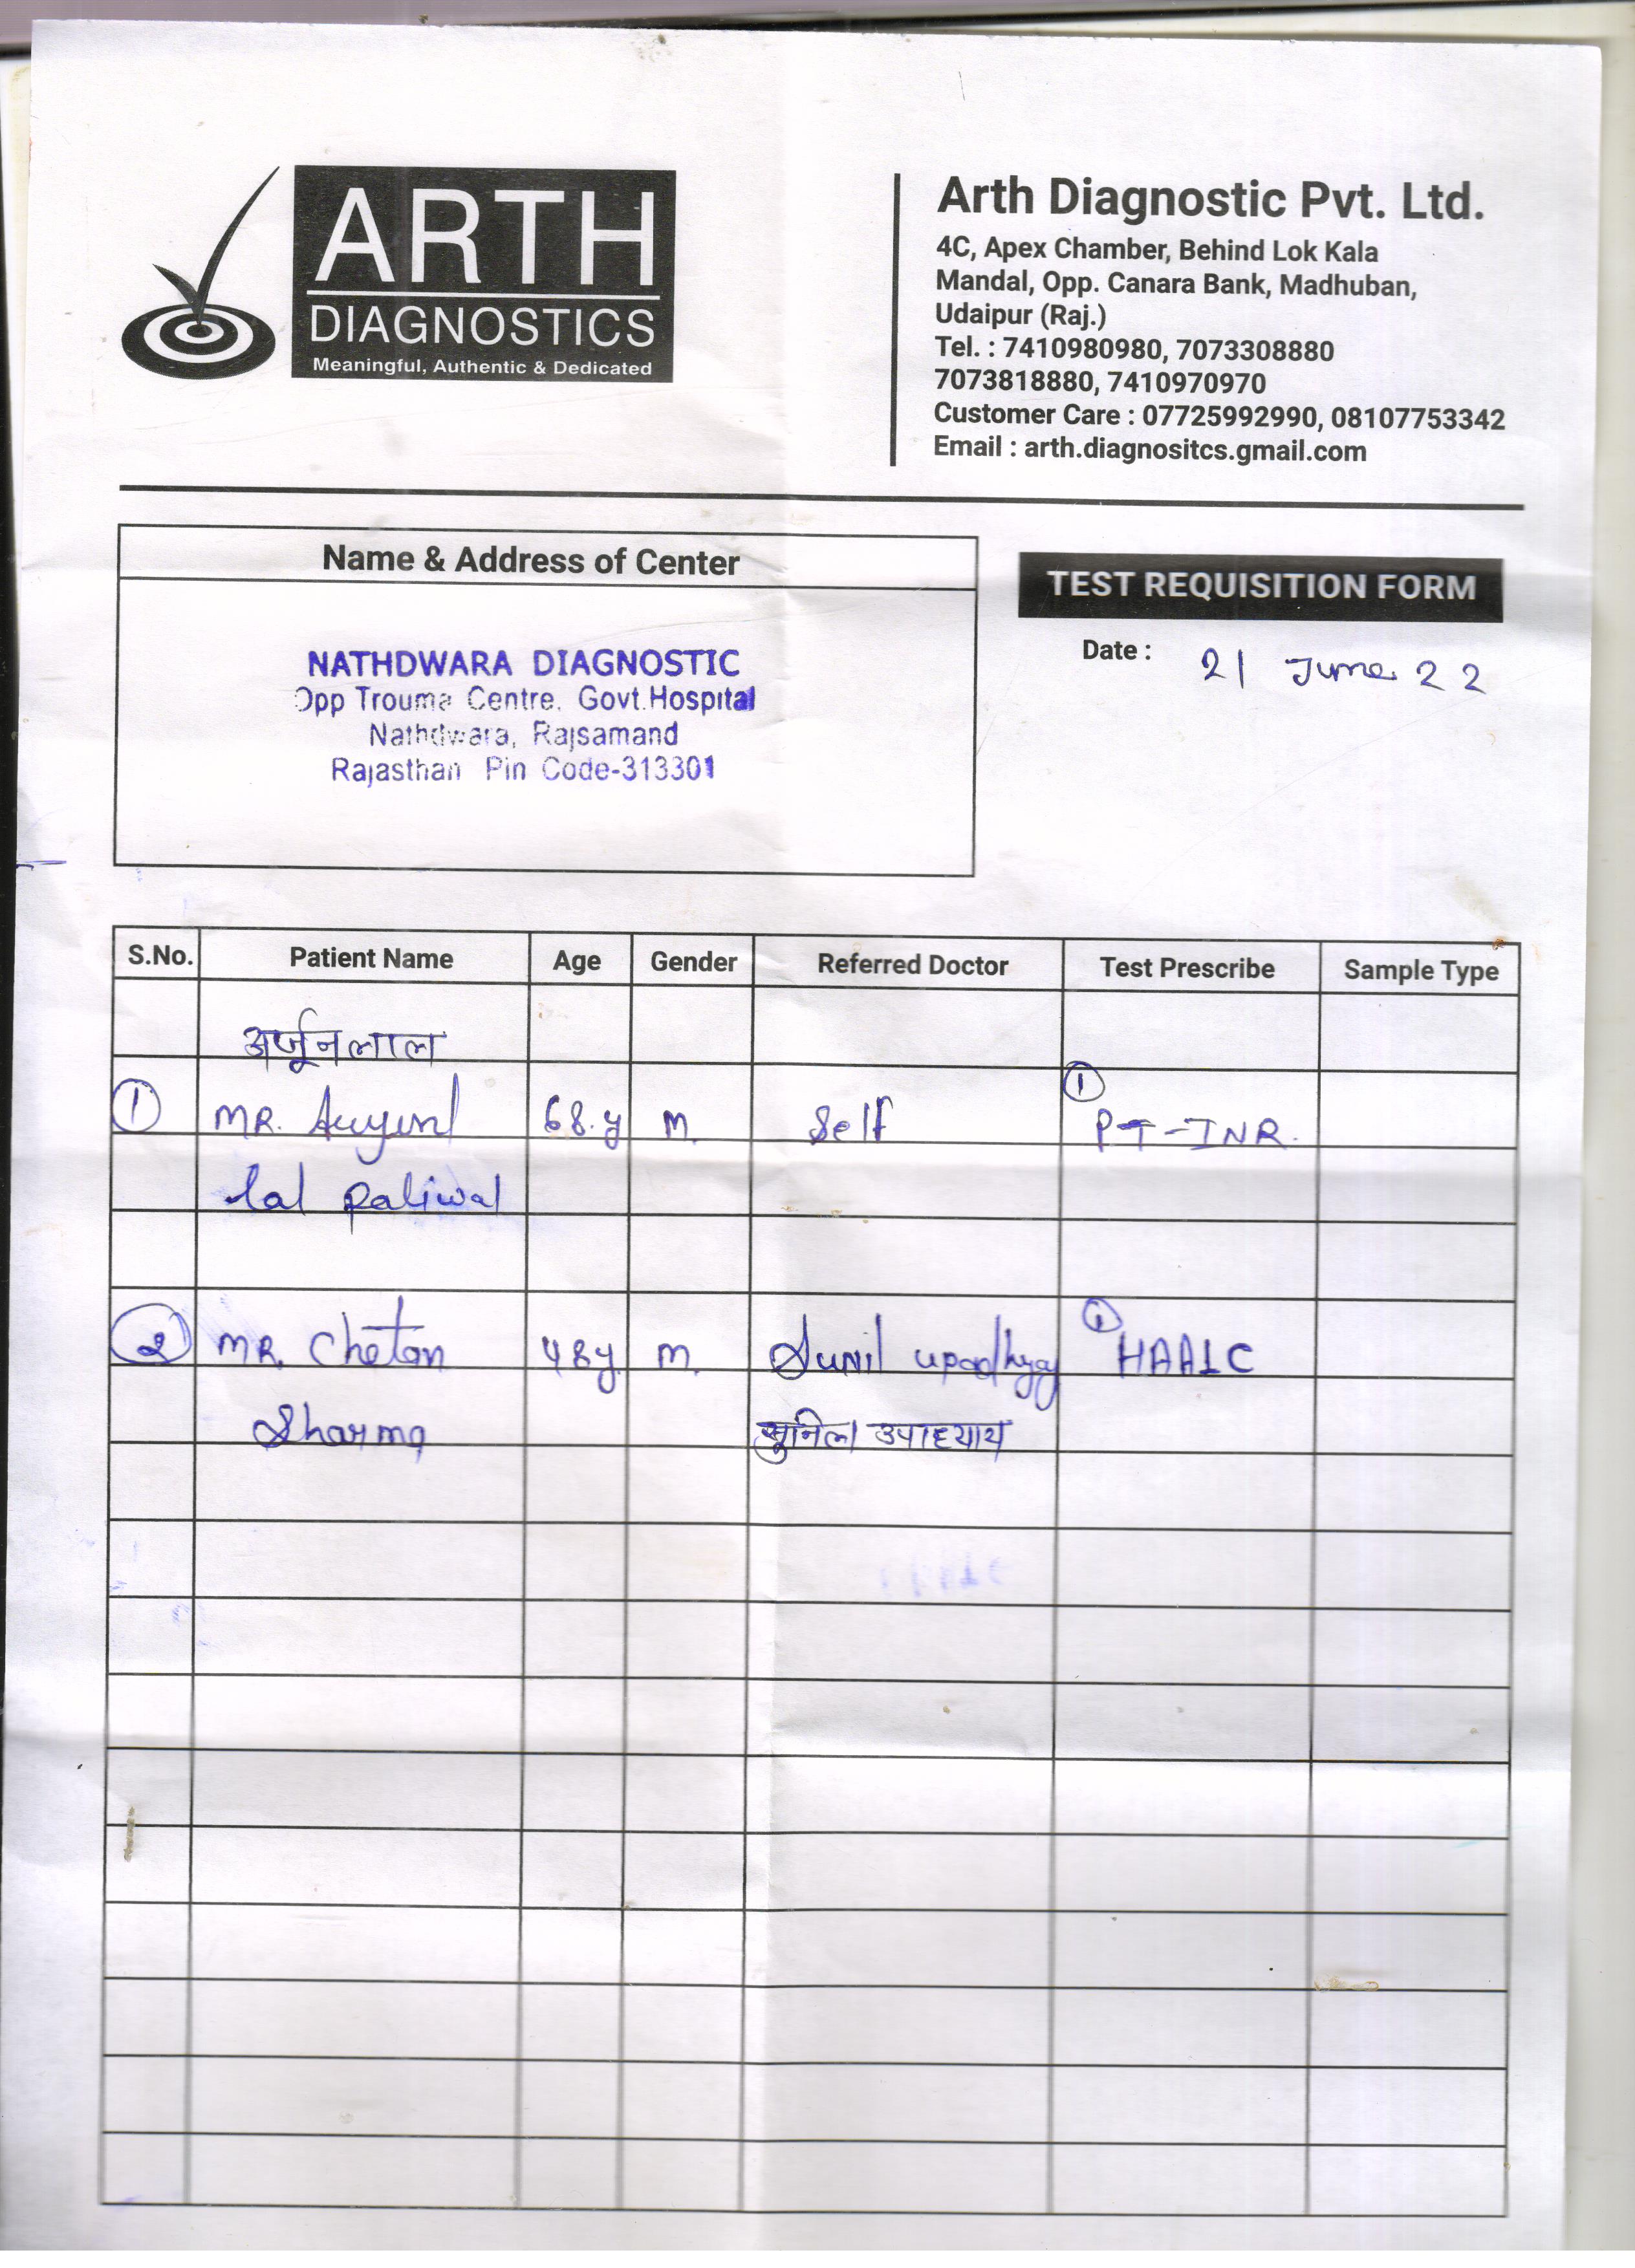 ARTH
DIAGNOSTICS
Meaningful, Authentic & Dedicated
Arth Diagnostic Pvt. Ltd.
4C, Apex Chamber, Behind Lok Kala
Mandal, Opp. Canara Bank, Madhuban,
Udaipur (Raj.)
Tel. : 7410980980, 7073308880
7073818880, 7410970970
Customer Care : 07725992990, 08107753342
Email : arth.diagnositcs.gmail.com
Name & Address of Center
NATHDWARA DIAGNOSTIC
Opp Trouma Centre, Govt.Hospital
Nathdwara, Rajsamand
Rajasthan Pin Code-313301
TEST REQUISITION FORM
Date : 21 June 22
S.No. Patient Name Age Gender Referred Doctor Test Prescribe Sample Type
अर्जूनलाल
1 MR. 68.y M. Self 1 PT-INR.
lal paliwal
2 MR. Chetan 48y. M. Sunil upadhyay 1 HAA1C
Sharma सुनिल उपाध्याय